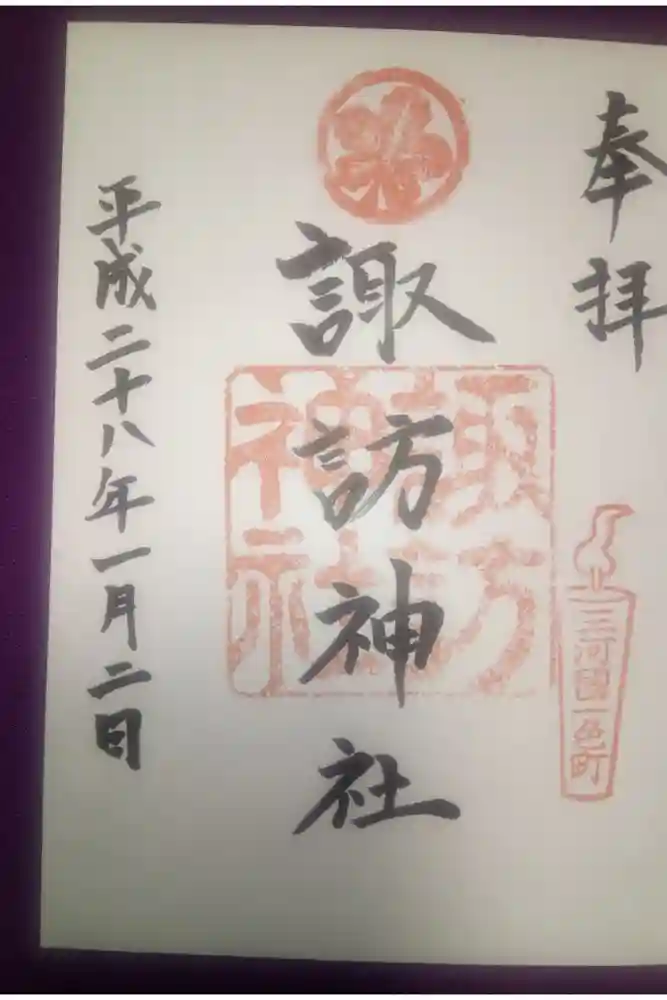 奉拝
三河国一色町
諏訪神社
諏訪神社
平成二十八年一月二日